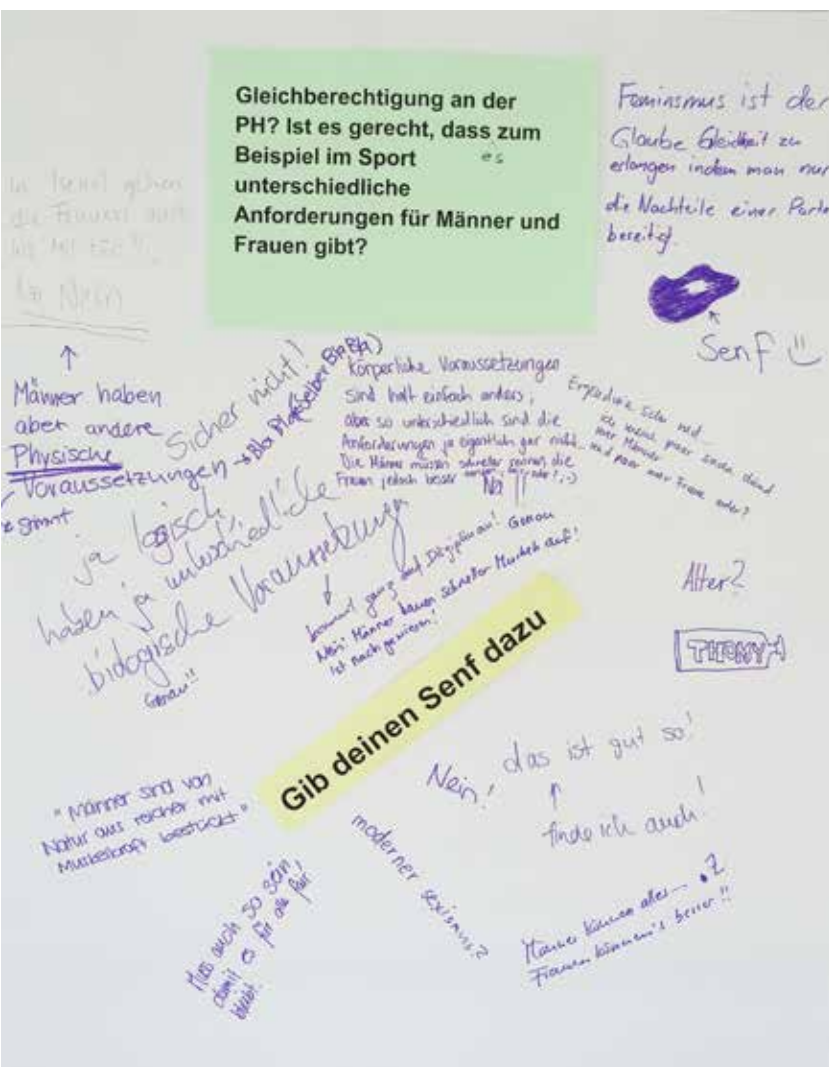 Gleichberechtigung an der
PH? Ist es gerecht, dass zum
Beispiel im Sport es
unterschiedliche
Anforderungen für Männer und
Frauen gibt?
Feminsmus ist der
Glaube Gleichheit zu
erlangen indem man nur
die Nachteile einer Parte
bereitigt.
Senf
die Frauen
Nein
Männer haben
aber andere
Physische
Voraussetzungen → Bla
stimmt
Sicher nicht!
Selber Bla Bla)
Körperliche Voraussetzungen
sind halt einfach anders,
aber so unterschiedlich sind die
Anforderungen ja eigentlich gar nicht...
Die Männer müssen schneller rennen die
Frauen jedoch besser
Na
mer Männer
und paar mer Fraue oder?
ja logisch,
haben ja unterschiedliche
biologische Voraussetzungen
Genau!!
kommt ganz auf Disziplin an! Genau
Nein! Männer bauen schneller Muskeln auf!
Ist nachgewiesen!
Alter?
THOMY
Gib deinen Senf dazu
Nein! das ist gut so!
finde ich auch!
"Männer sind von
Natur aus reicher mit
Muskelkraft bestückt"
moderner sexismus?
Muss auch so sein,
damit es für alle fair
bleibt!
Männer können alles... ?
Frauen können's besser!!